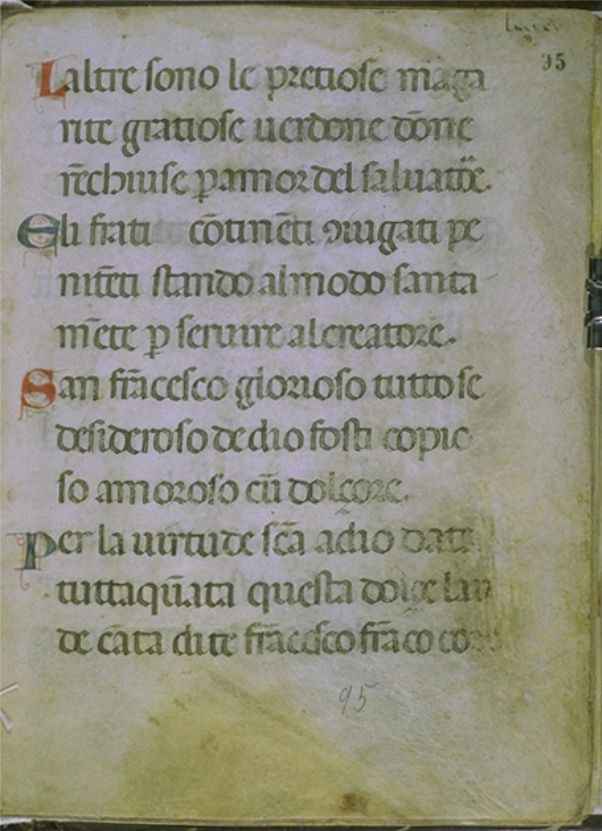 95
Laltre sono le pretiose maga
rite gratiose uerdone dōne
rēchiuse ꝑ amor del saluatōe.
Eli frati cōtinēti ꝯiugati pe
nitēti stando almodo santa
mēte ꝑ seruire alcreatore.
San frācesco glorioso tutto se
desideroso dedio fosti copio
so amoroso cū dolçore.
Per la uirtude scā adio data
tuttaqūata questa dolçe lau
de cāta dite frācesco frāco
95